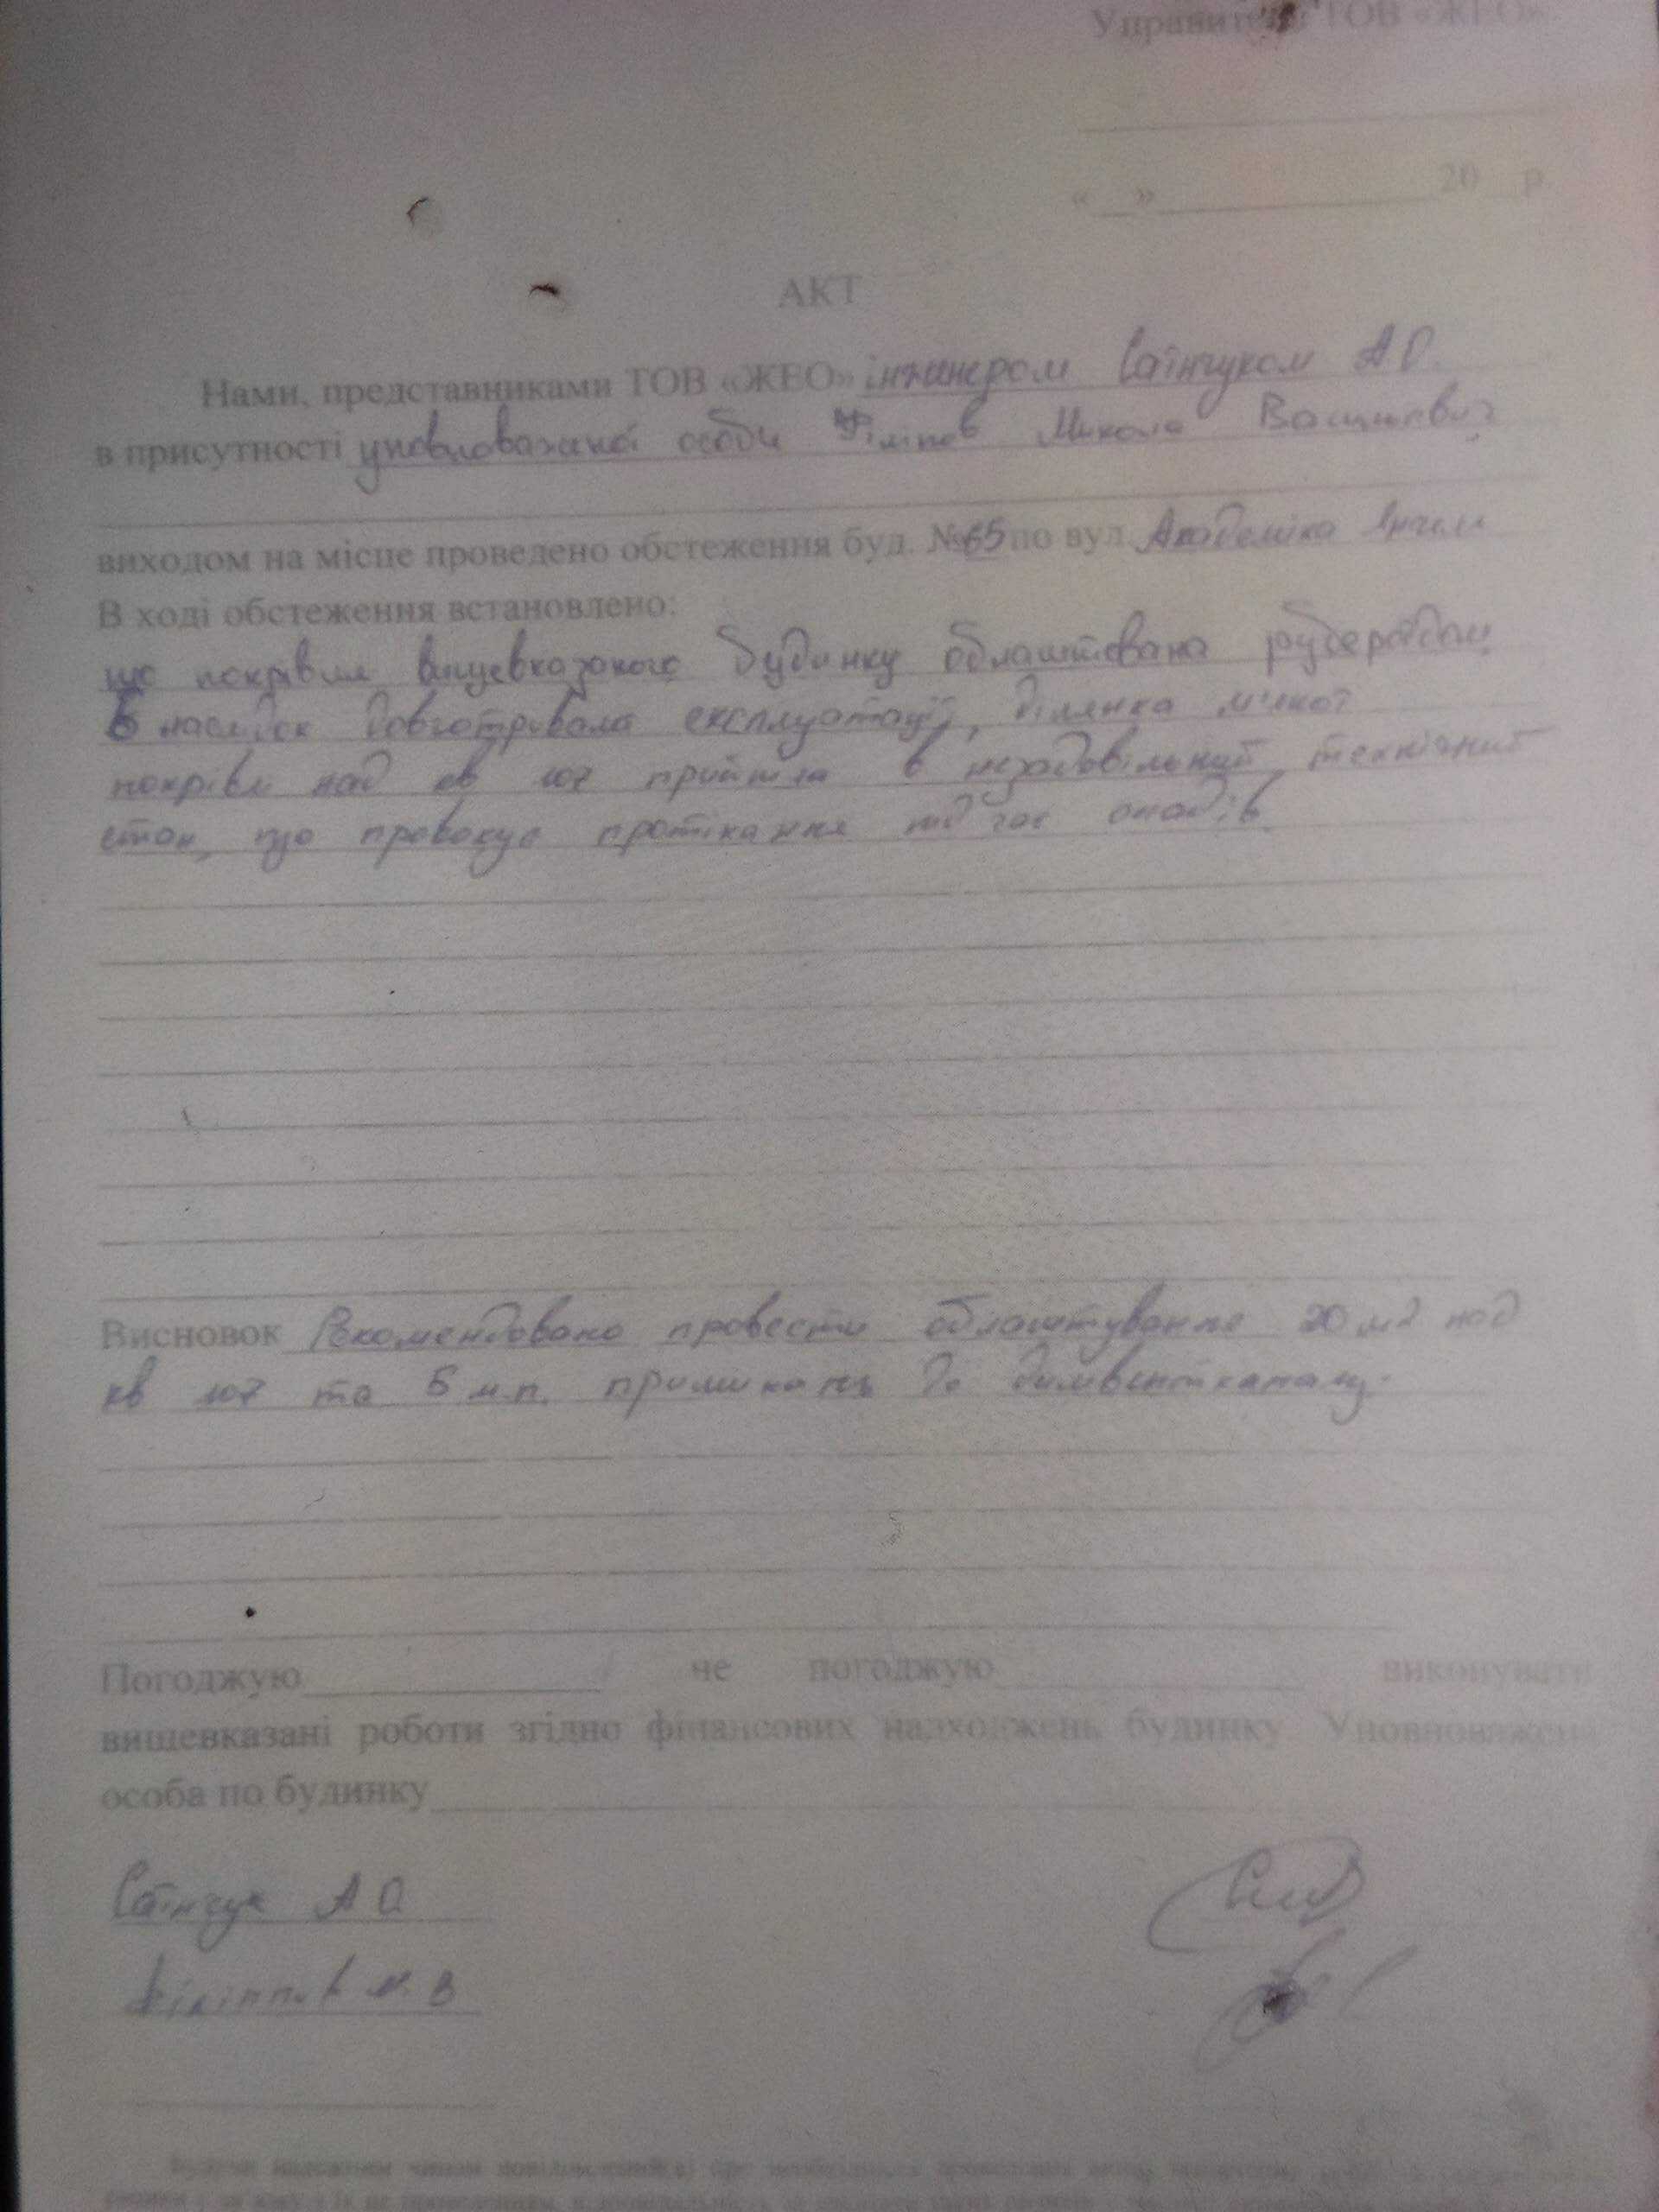 Управитель ТОВ «ЖЕО»
«__»______________20__р.
АКТ
Нами, представниками ТОВ «ЖЕО» інженером Саїнчуком А О.
в присутності уповноваженої особи Філіпов Микола Васильевич
виходом на місце проведено обстеження буд. №65 по вул. Академіка
В ході обстеження встановлено:
що покрівля вищевказаного будинку облаштована рубероїдом
В наслідок довготривалої експлуатації, ділянка м'якої
покрівлі над кв 107 прийшла в незадовільний технічний
стан, що провокує протікання під час опадів.
Висновок Рекомендовано провести облаштування 20 м2 над
кв 107 та 6 м.п. примикань до димвентканалу.
Погоджую______________/ не погоджую______________ виконувати
вищевказані роботи згідно фінансових надходжень будинку. Уповноважена
особа по будинку______________
Саїнчук А О
Філіппов М. В